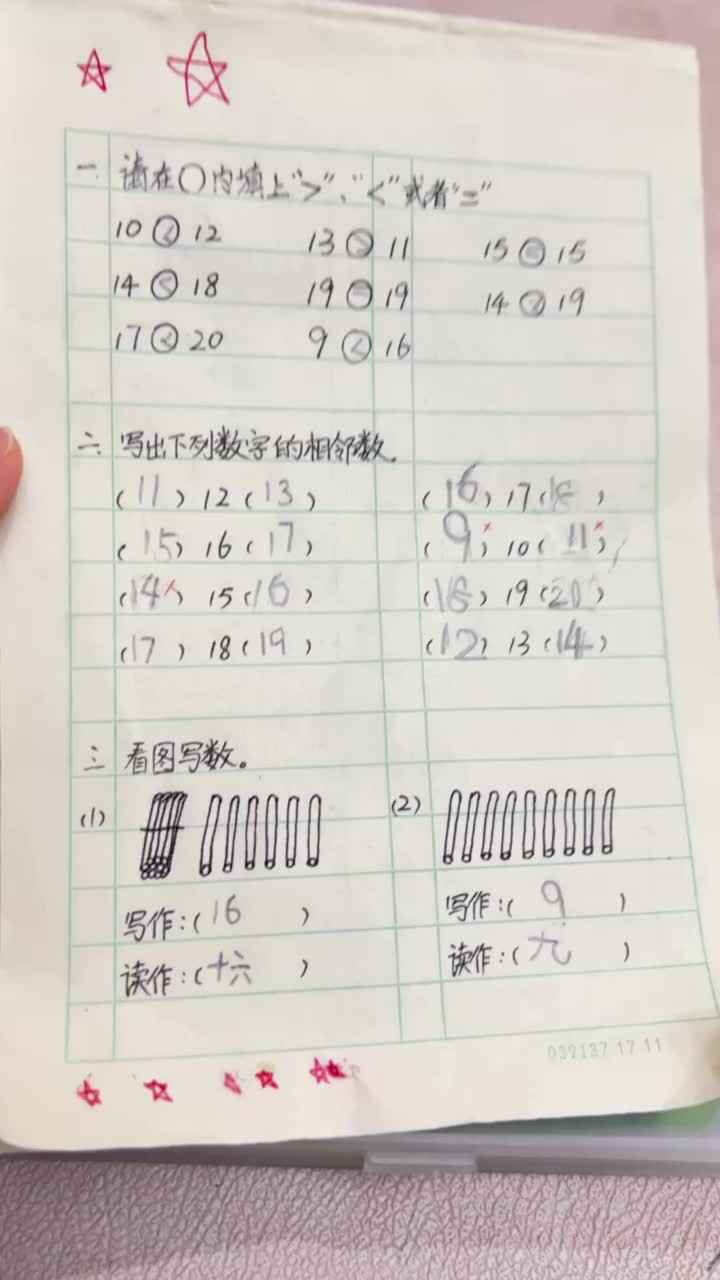 一 请在○内填上“>”、“<”或者“=”
10 < 12 13 > 11 15 = 15
14 < 18 19 = 19 14 < 19
17 < 20 9 < 16
二 写出下列数字的相邻数。
(11) 12 (13) (16) 17 (18)
(15) 16 (17) (9) 10 (11)
(14) 15 (16) (18) 19 (20)
(17) 18 (19) (12) 13 (14)
三 看图写数。
(1) (2)
写作:(16) 写作:(9)
读作:(十六) 读作:(九)
032137 17 11